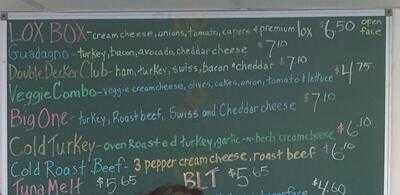 LOX BOX-cream cheese, onions, tomato, capers & premium lox $6.50 open face
Guadagno - turkey, bacon, avocado, cheddar cheese $7.10
Double Decker Club - ham, turkey, swiss, bacon & cheddar $7.10
Veggie Combo - veggie creamcheese, olives, cukes, onion, tomato & lettuce $4.75
Big One - turkey, Roast beef, Swiss and Cheddar cheese $7.10
Cold Turkey - oven Roasted turkey, garlic-n-herb creamcheese $6.10
Cold Roast Beef - 3 pepper cream cheese, roast beef $6.10
Tuna Melt $5.65 BLT $5.65
$4.60